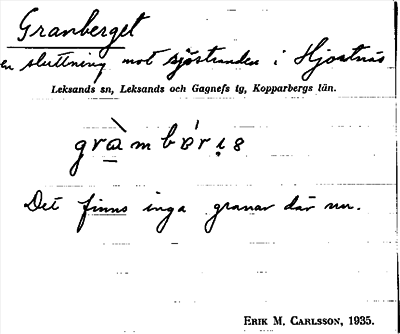 Granberget
en sluttning mot sjöstranden i Hjortnäs
Leksands sn, Leksands och Gagnefs tg, Kopparbergs län.
Det finns inga granar där nu.
ERIK M. CARLSSON, 1935.